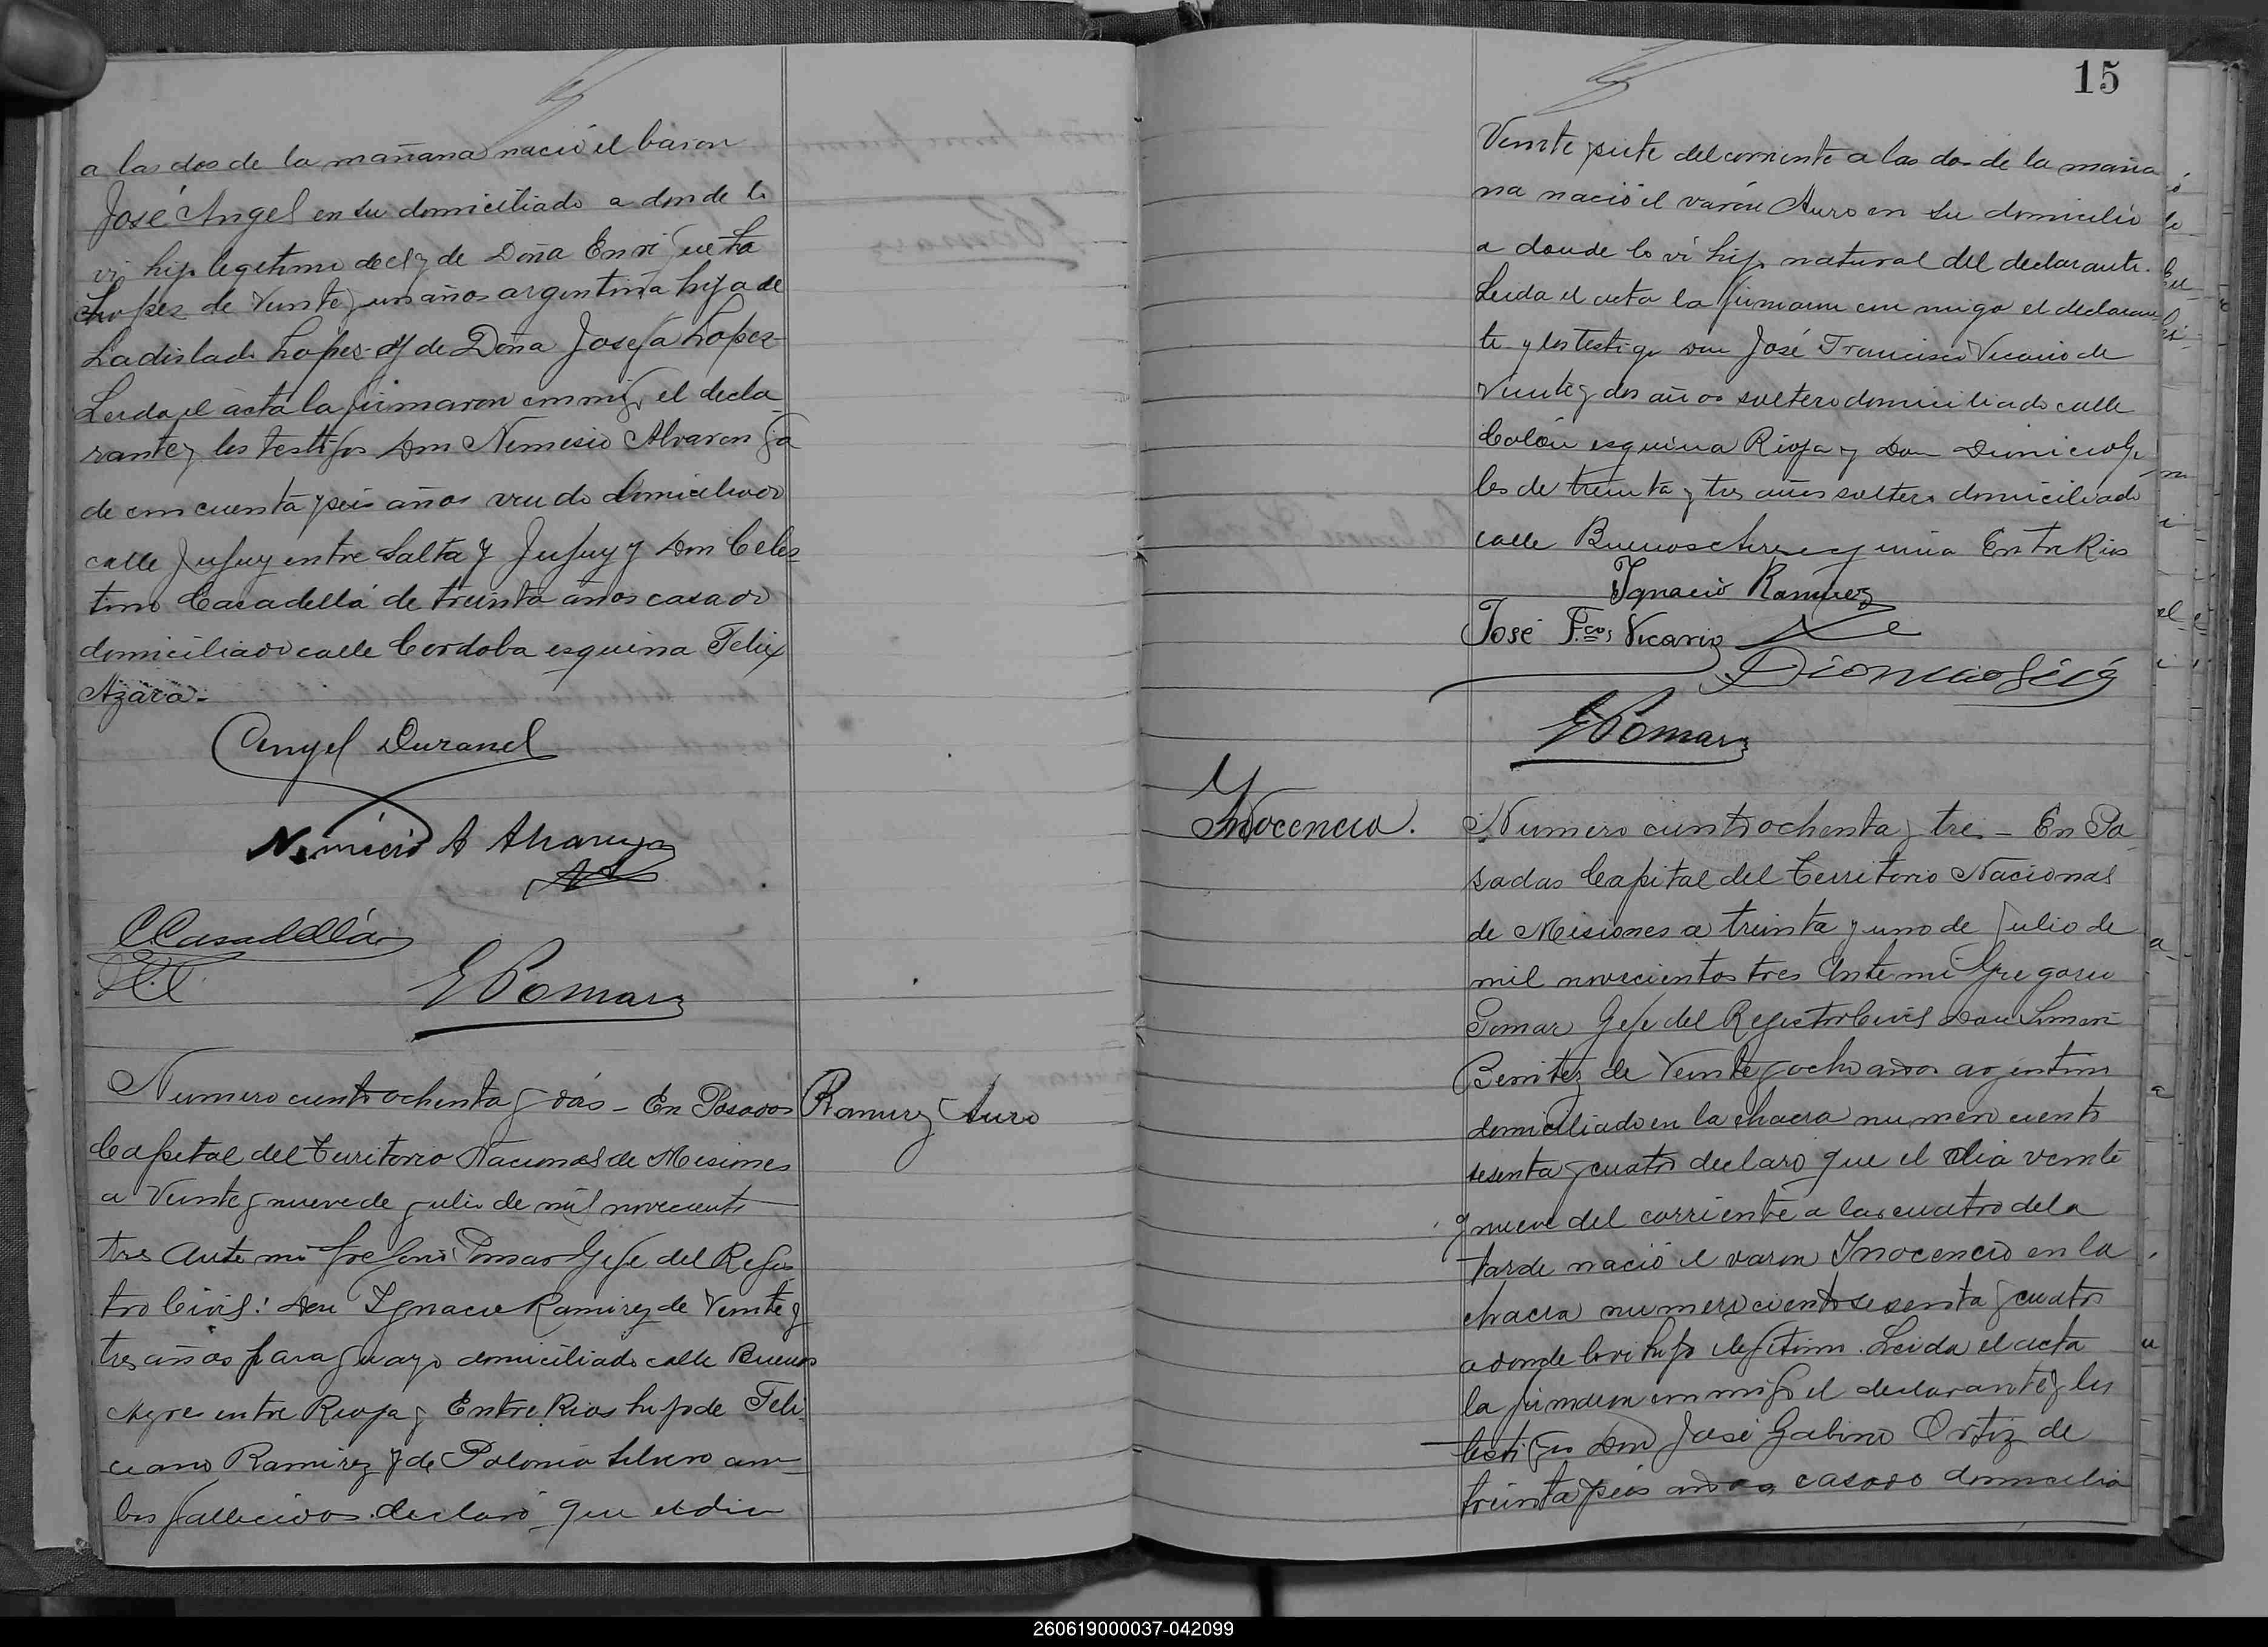 a las dos de la mañana nació el baron
José Angel en su domiciliado a donde lo
vi hijo legetimo de el y de Doña Enriqueta
Lopez de Veinte y un años argentina hija de
Ladislado Lopez y de Doña Josefa Lopez
Leida el acta la firmaron conmigo el decla
rante y los testigos Don Nemesio Alvarenga
de cincuenta y seis años viudo domiciliado
calle Jujuy entre Salta y Jujuy y Don Celes
tino Casadellá de treinta años casado
domiciliado calle Cordoba esquina Felix
Azara.
Angel Duranel
N A
CCasadellá
GPomar
Numero ciento ochenta y dos - En Posadas
Ramirez Auro
Capital del Territorio Nacional de Misiones
a Veinte y nueve de Julio de mil novecientos
tres Ante mi Gregorio Pomar Gefe del Regis
tro Civil: Don Ignacio Ramirez de Veinte y
tres años paraguayo domiciliado calle Buenos
Ayres entre Rioja y Entre Rios hijo de Feli
ciano Ramirez y de Polonia Silvero am
bos fallecidos declaró que el dia
15
Veinte y siete del corriente a las dos de la maña
na nació el varón Auro en su domicilio
a donde lo vi hijo natural del declarante.
Leida el acta la firmaron con migo el declaran
te y los testigos don José Francisco Vicario de
Veinte y dos años soltero domiciliado calle
Colón esquina Rioja y Don
de treinta y tres años soltero domiciliado
calle Buenos Ayres esquina Entre Rios
Ignacio Ramirez
José Fcos Vicario
GPomar
Ynocencio.
Numero ciento ochenta y tres - En Po
sadas Capital del Territorio Nacional
de Misiones a treinta y uno de Julio de
mil novecientos tres Ante mi Gregorio
Pomar Gefe del Registro Civil Don
Benitez de Veinte y ocho años argentino
domiciliado en la chacra numero ciento
sesenta y cuatro declaro que el dia veinte
y nueve del corriente a las cuatro de la
tarde nació el varon Ynocencio en la
chacra numero ciento sesenta y cuatro
a donde lo vi hijo legitimo. Leida el acta
la firmaron conmigo el declarante y los
testigos Don José Gabino Ortiz de
treinta y seis años casado domicilia
260619000037-042099